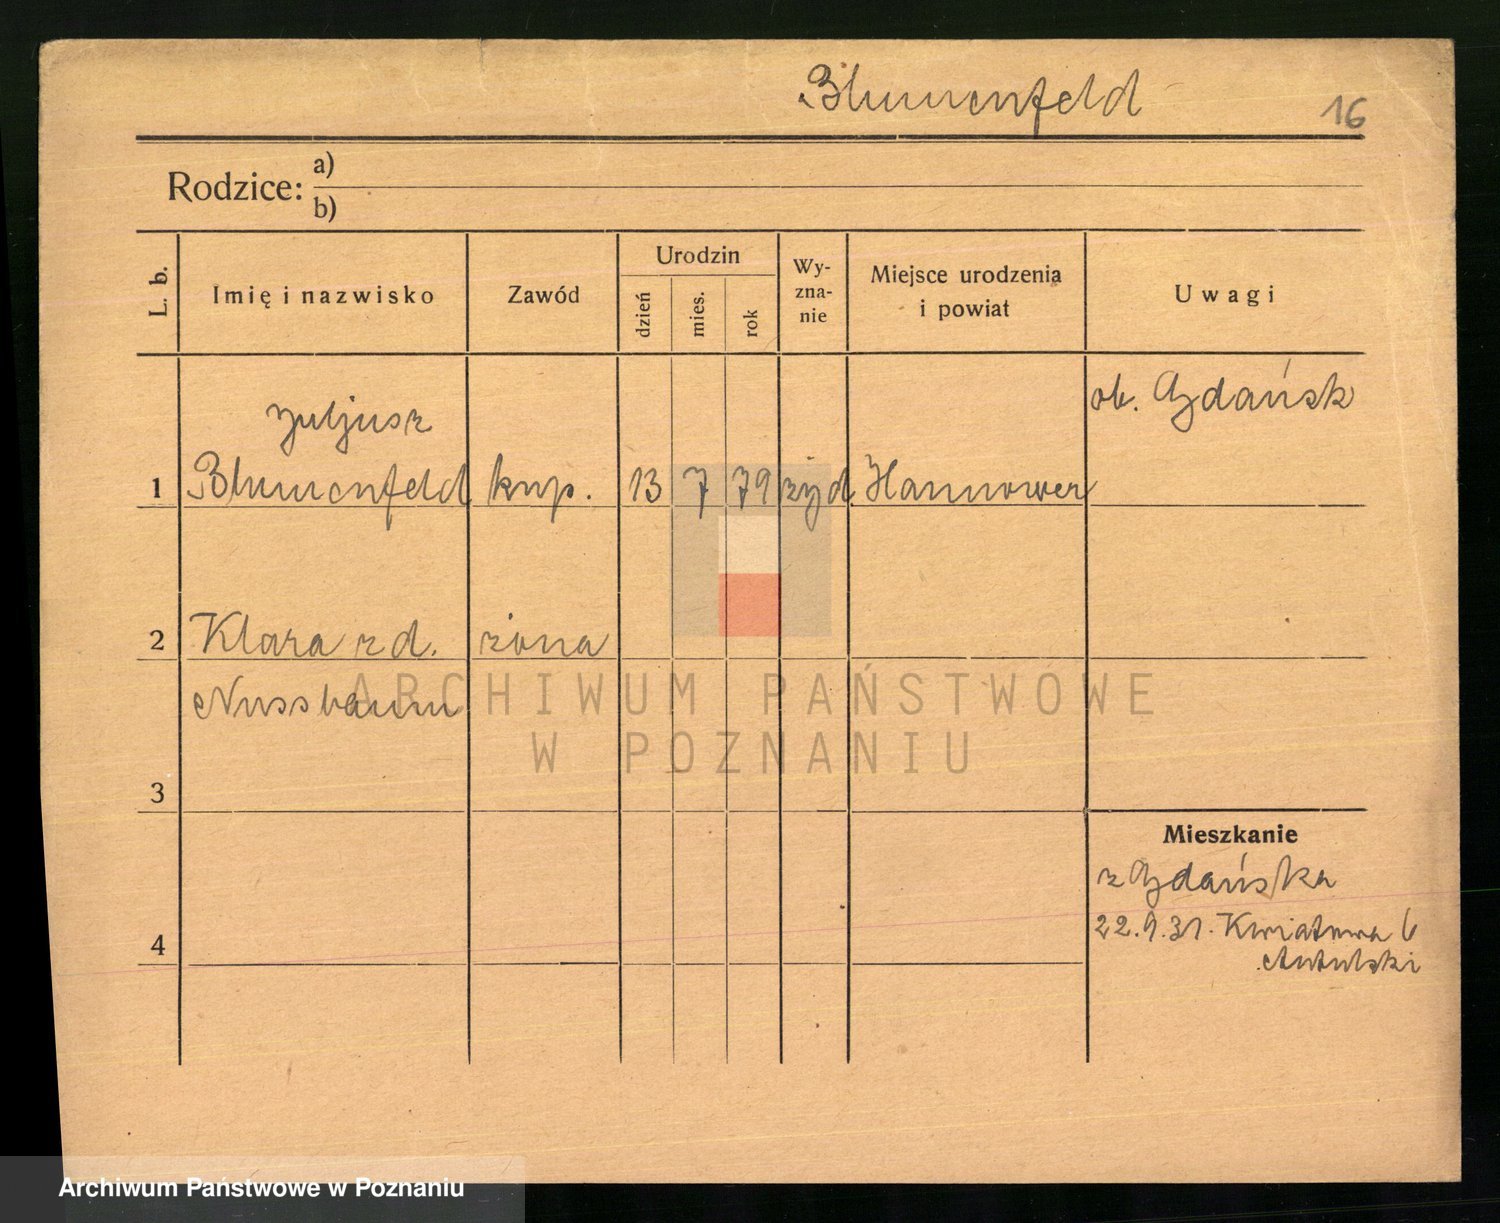 Blumenfeld
16
Rodzice: a)
b)
L. b. Imię i nazwisko Zawód Urodzin dzień mies. rok Wy-zna-nie Miejsce urodzenia i powiat Uwagi
ob. Gdańsk
Juljusz
1 Blumenfeld kup. 13 7 79 żyd Hannower
2 Klara z d. żona
Nussbaum
ARCHIWUM PAŃSTWOWE
W POZNANIU
3
Mieszkanie
z Gdańska
22.9.31. Kwiatowa 6
4
Archiwum Państwowe w Poznaniu